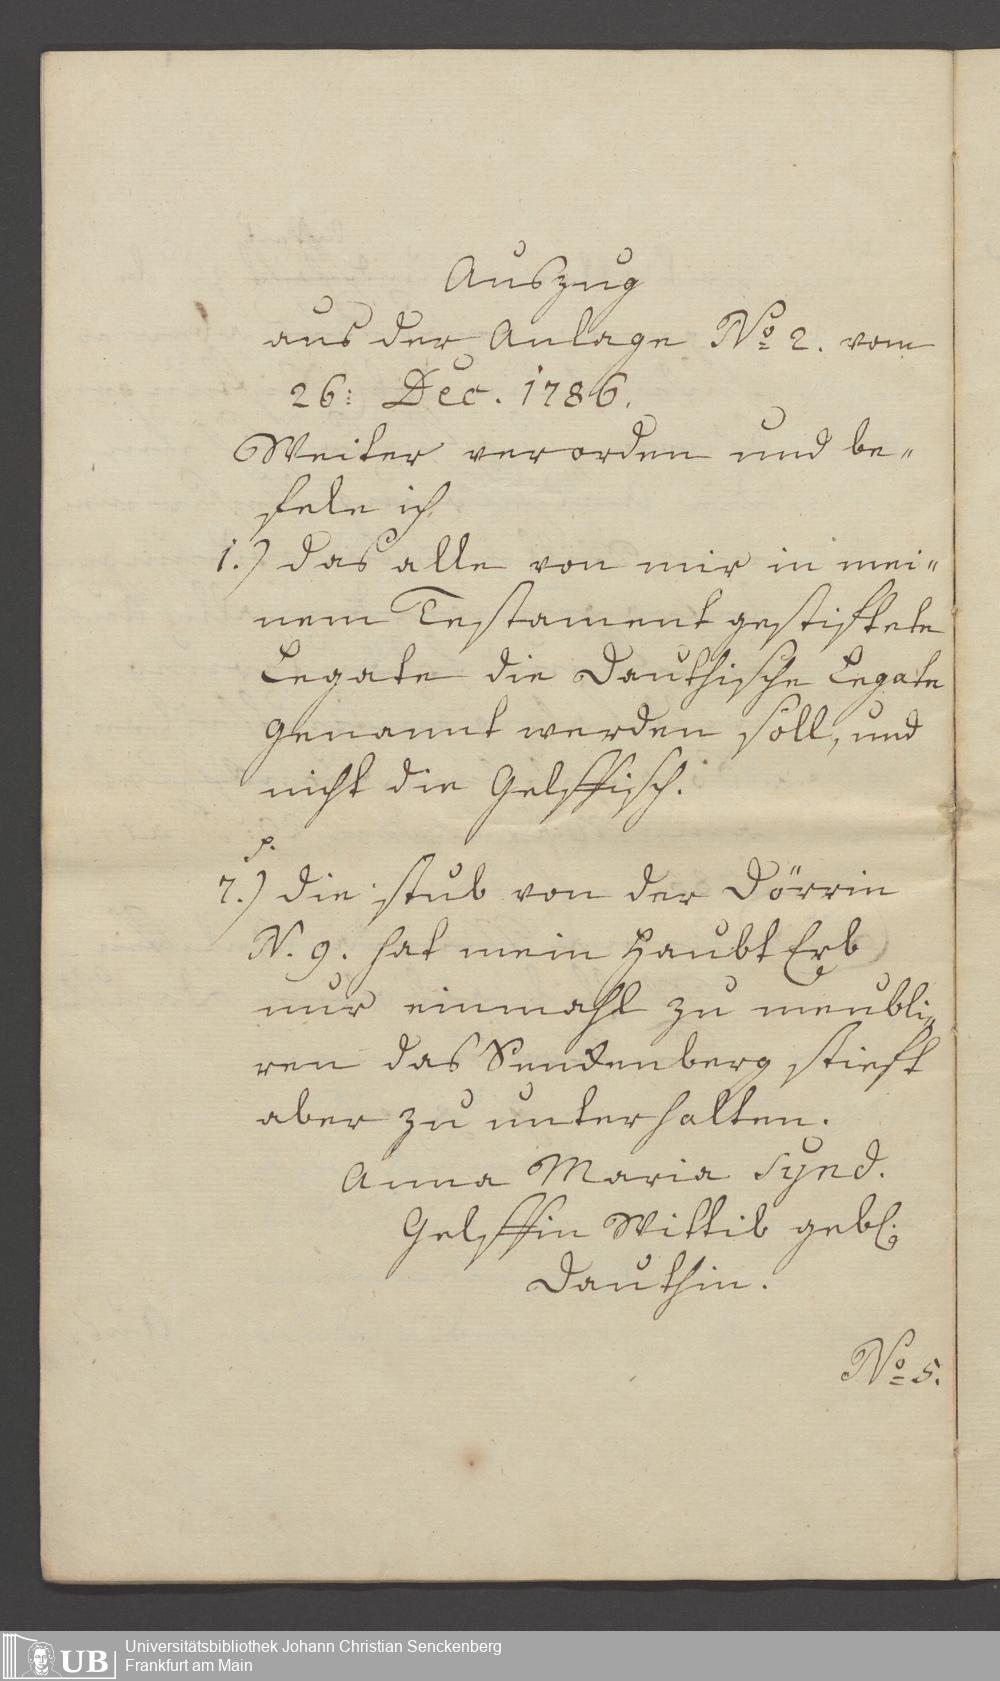 Auszug
aus der Anlage No 2. vom
26: Dec. 1786.
Weiter verorden und be-
fele ich
1.) das alle von mir in mei-
nem Testament gestiftete
Legate die Dauthische Legate
genannt werden soll, und
nicht die Gelffisch.
p.
7.) die stub von der Dörrin
N. 9. hat mein Haubt Erb
nur einmahl zu meubli-
ren das Senckenberg stieft
aber zu unterhalten.
Anna Maria Synd.
Gelffin Wittib gebl.
Dauthin.
No 5.
Universitätsbibliothek Johann Christian Senckenberg
Frankfurt am Main
UB